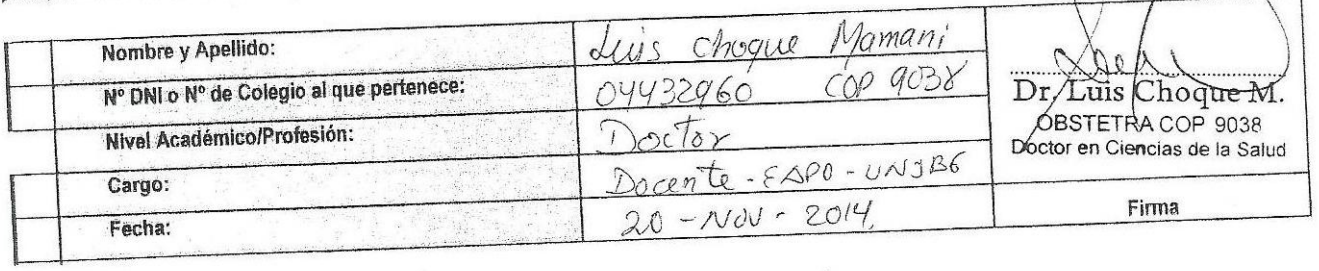 Nombre y Apellido: Luis Choque Mamani
Nº DNI o Nº de Colegio al que pertenece: 04432960 COP 9038
Nivel Académico/Profesión: Doctor
Cargo: Docente - EAPO - UNJBG
Fecha: 20 - NOV - 2014.
Dr. Luis Choque M.
OBSTETRA COP 9038
Doctor en Ciencias de la Salud
Firma